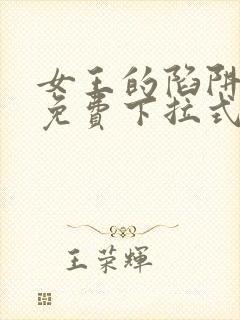 女王的陷阱
免費下拉式
王荣輝